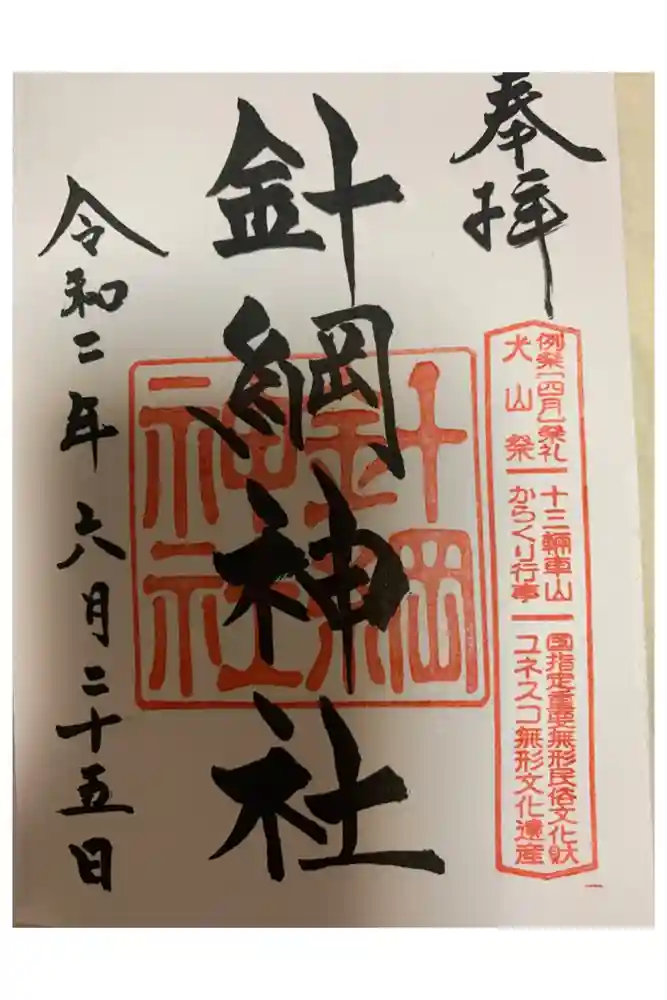 奉拝
例祭「四月」祭礼
犬山祭
十三輛車山
からくり行事
国指定重要無形民俗文化財
ユネスコ無形文化遺産
針綱神社
針綱
神社
令和二年六月二十五日